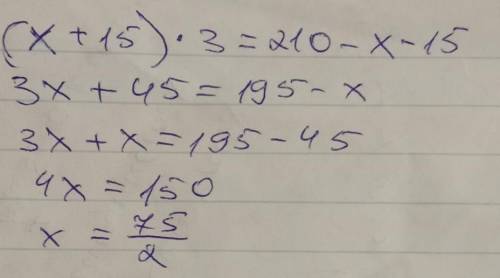 (x + 15) · 3 = 210 - x - 15
3x + 45 = 195 - x
3x + x = 195 - 45
4x = 150
x = 75/2